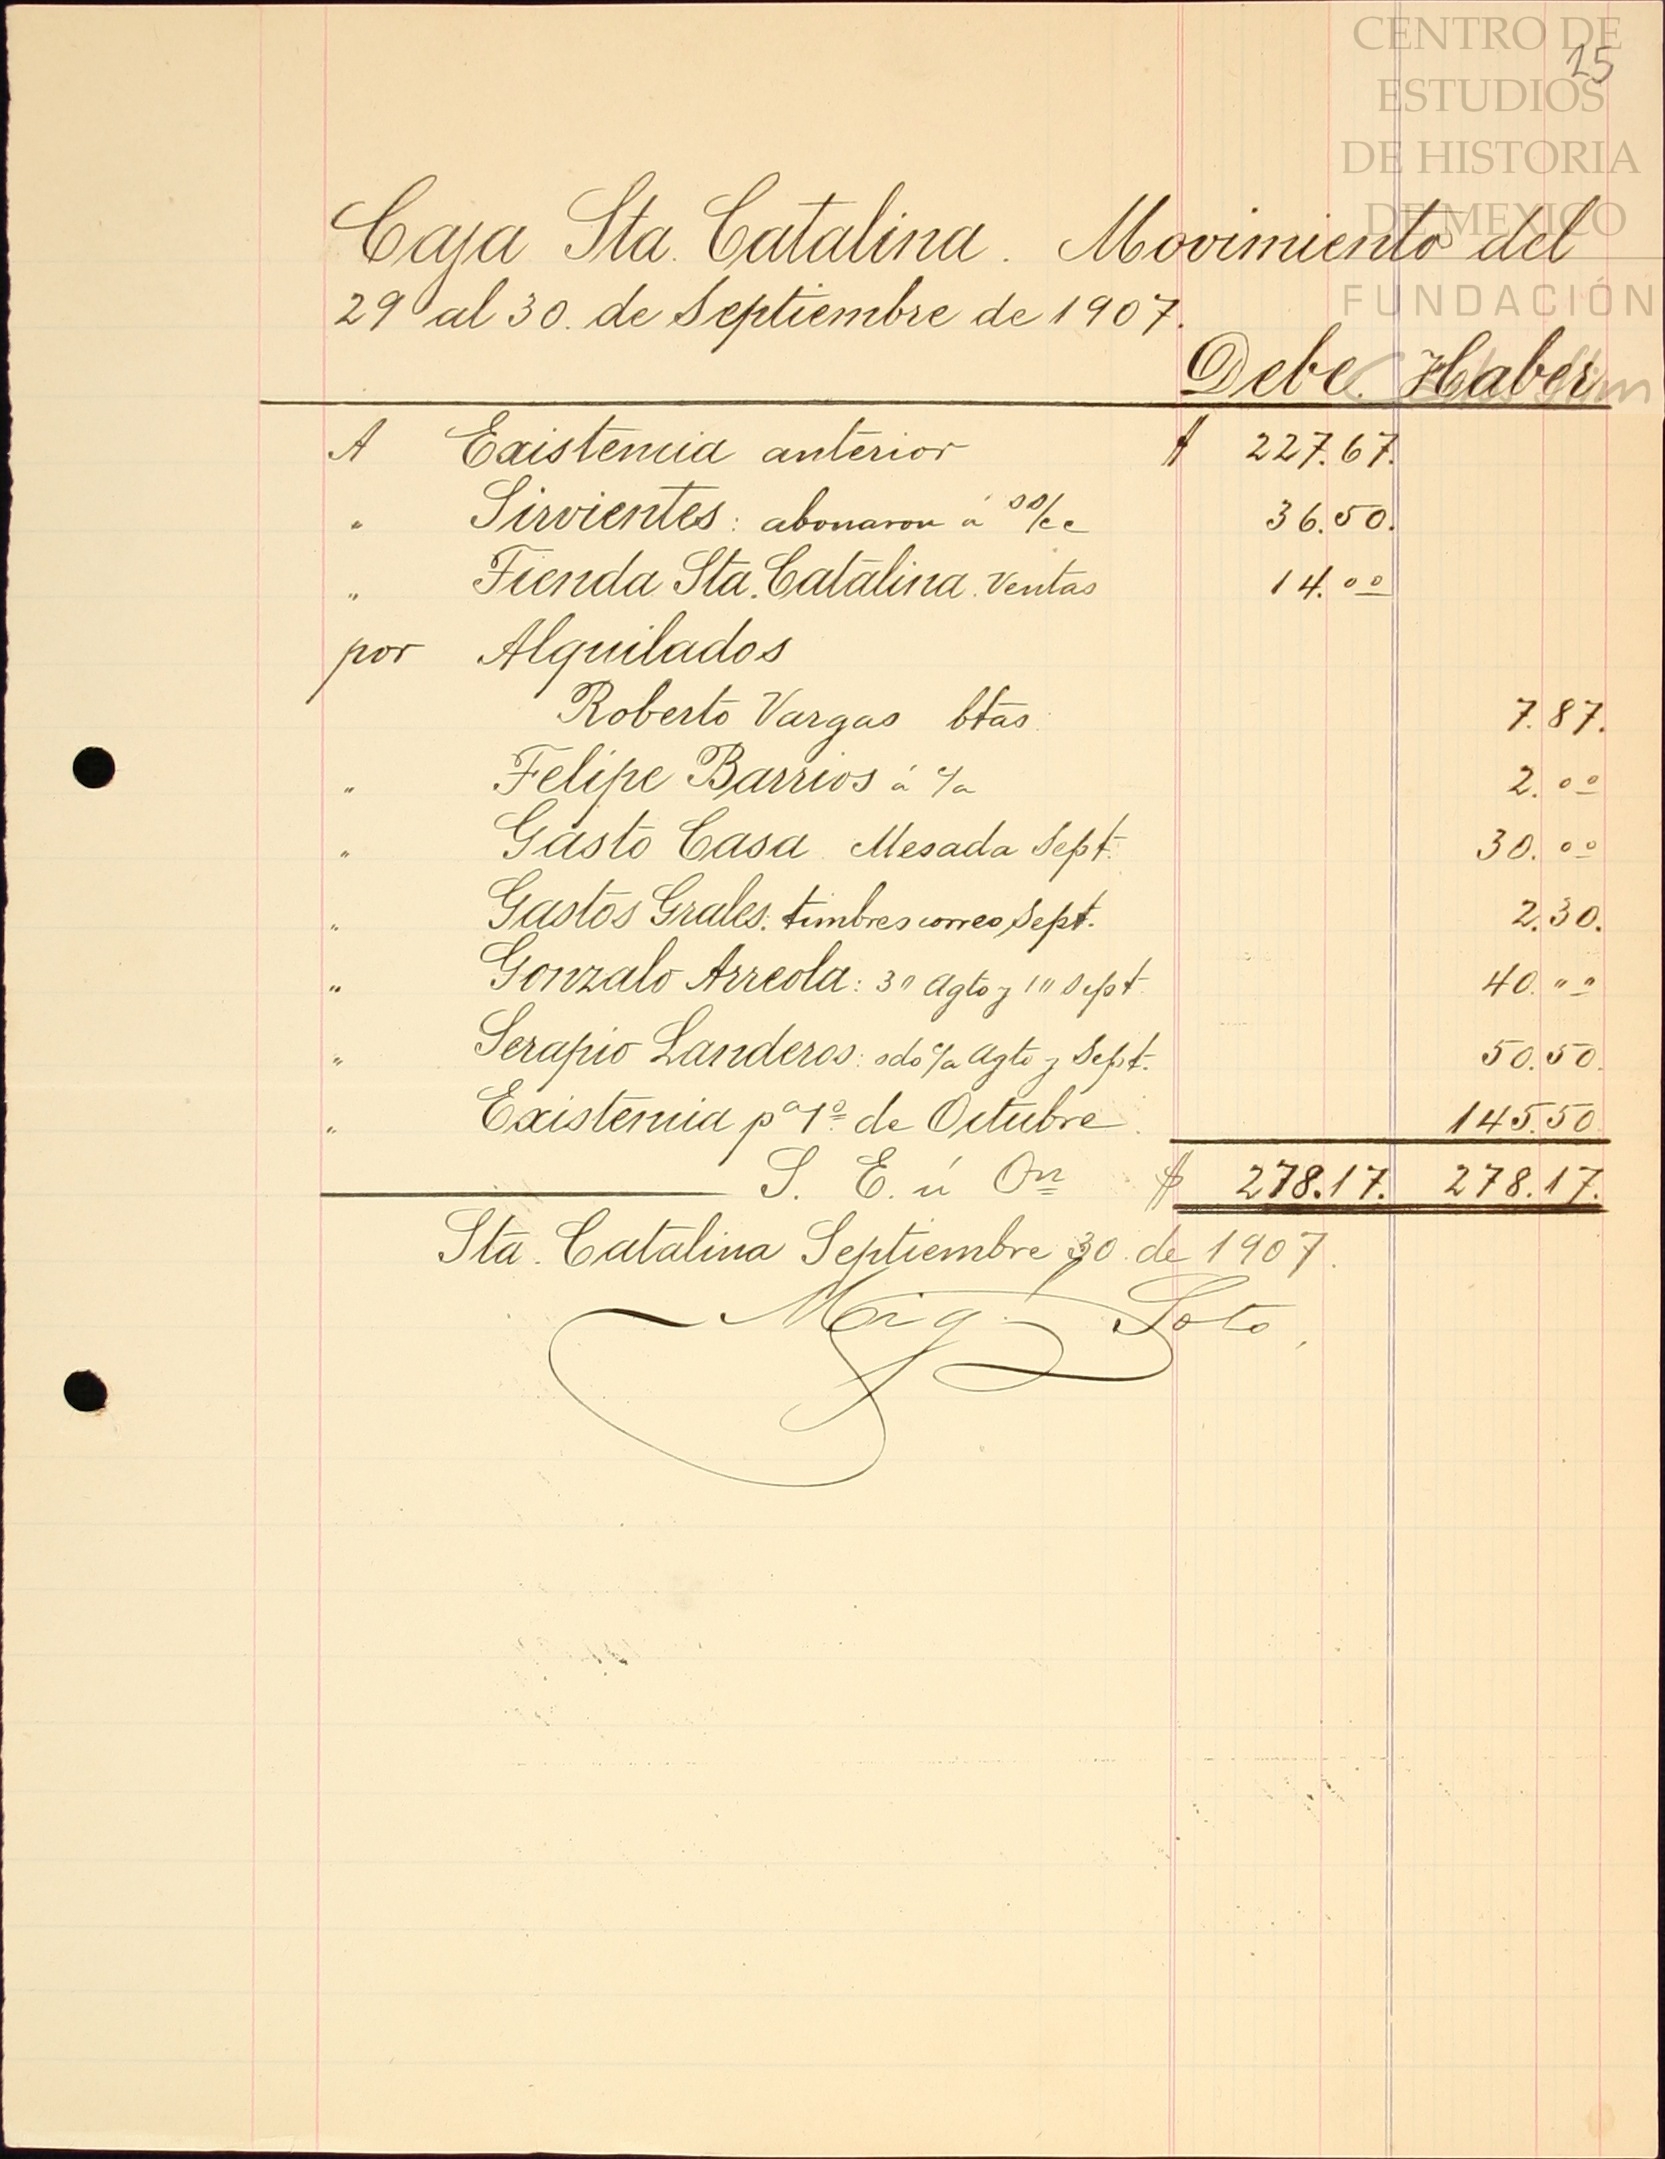 CENTRO DE
ESTUDIOS
DE HISTORIA
DE MEXICO
FUNDACIÓN
25
Caja Sta. Catalina. Movimiento del
29 al 30. de Septiembre de 1907.
Debe. Haber
A Existencia anterior $ 227.67.
" Sirvientes: abonaron á ss/cc 36.50.
" Tienda Sta. Catalina. Ventas 14.00
por Alquilados
Roberto Vargas btas. 7.87.
" Felipe Barrios á c/a 2.00
" Gasto Casa Mesada Sept. 30.00
" Gastos Grales. timbres correo Sept. 2.30.
" Gonzalo Arreola: 30 Agto y 10 Sept 40.""
" Serapio Landeros: sdo c/a Agto y Sept. 50.50.
" Existencia pa 1o. de Octubre. 145.50
S. E. ú On $ 278.17. 278.17.
Sta. Catalina Septiembre 30. de 1907.
Mig. Soto.